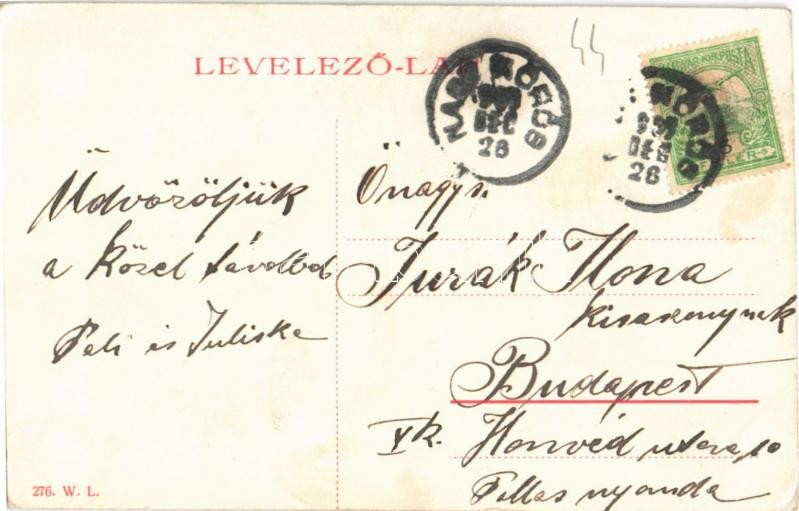 LEVELEZŐ-LAP
44
NAGY KŐRÖS
907
DEC
26
KŐRÖS
907
DEC
26
MAGYAR KIR. POSTA
FILLÉR
Üdvözöljük
a közel távolból
Pali és Juliska
Önagys.
Turák Ilona
kisasszonynak
Budapest
V. k. Honvéd utcza 10
Pallas nyomda
276. W. L.